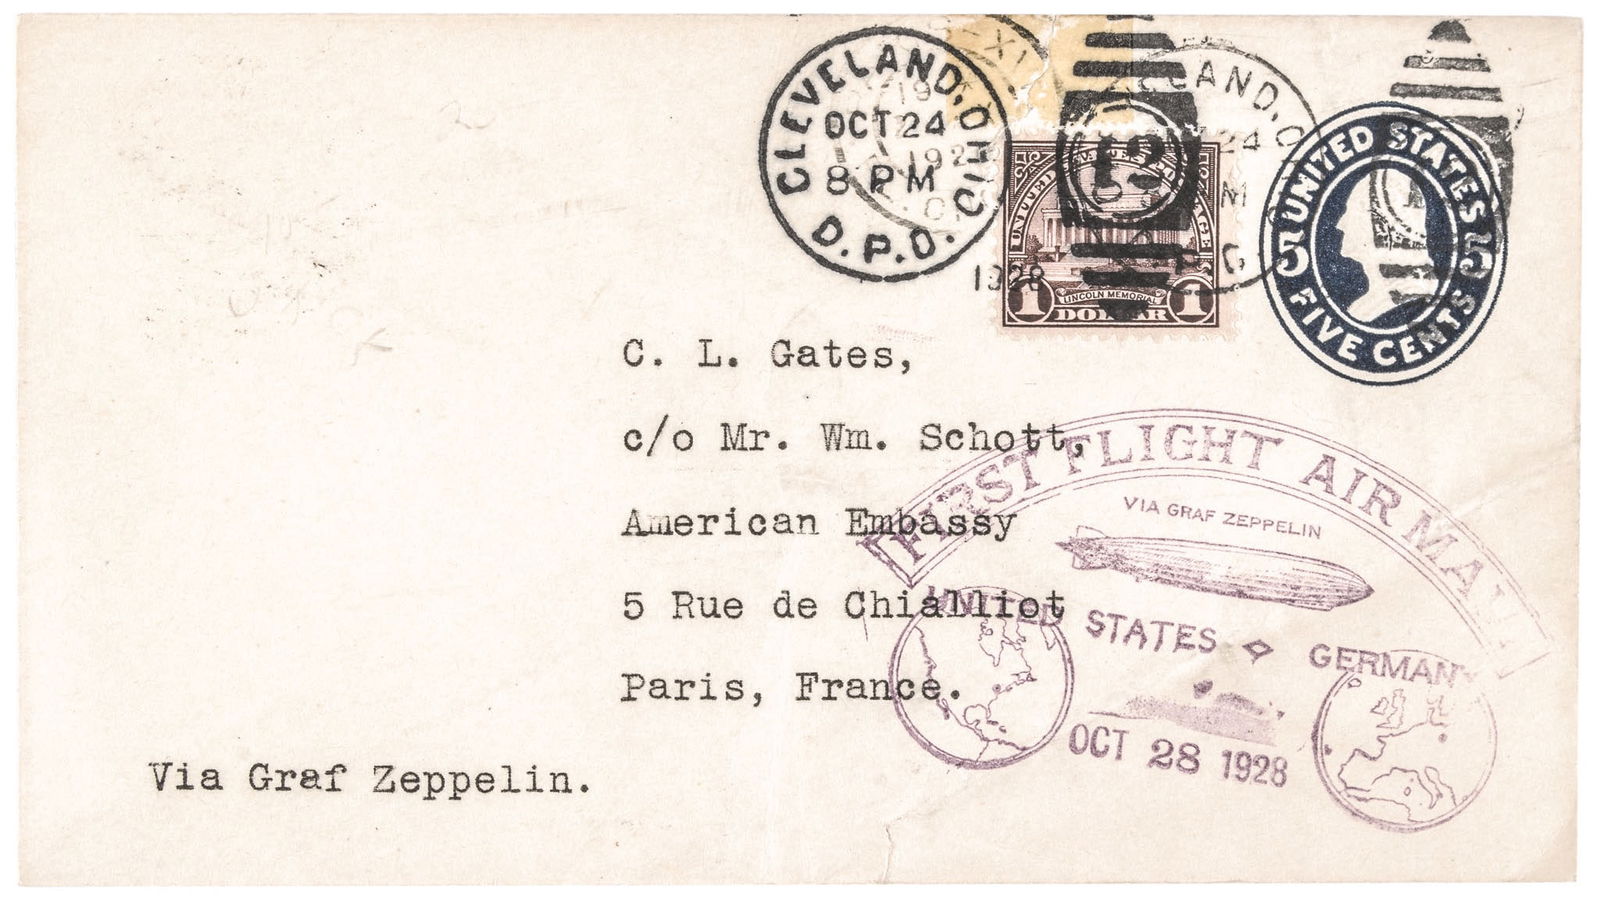 CLEVELAND, OHIO
OCT 24
8 PM
D.P.O.
1928
12
1 LINCOLN MEMORIAL 1
DOLLAR
UNITED STATES
5 5
FIVE CENTS
C. L. Gates,
c/o Mr. Wm. Schott,
American Embassy
5 Rue de Chialliot
Paris, France.
Via Graf Zeppelin.
FIRST FLIGHT AIR MAIL
VIA GRAF ZEPPELIN
UNITED STATES GERMANY
OCT 28 1928